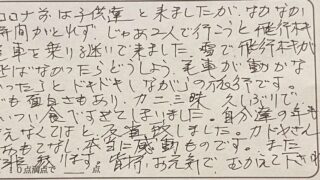 コロナ前は子供達と来ましたが、なかなか
時間がとれず、じゃあ2人で行こうと飛行機
電車を乗り継いで来ました。雪で飛行機が
ばなかったらどうしよう。電車が動かな
ったらとドキドキしながらの旅行です。
も面白さもあり、カニ三昧、久しぶりで、
つい食べすぎてしまいました。自分達の年も
えなくてはと、反省致しました。カドヤさん
おもてなし、本当に感動ものです。また
お元気で、むかえて下さいね
10点満点で 点